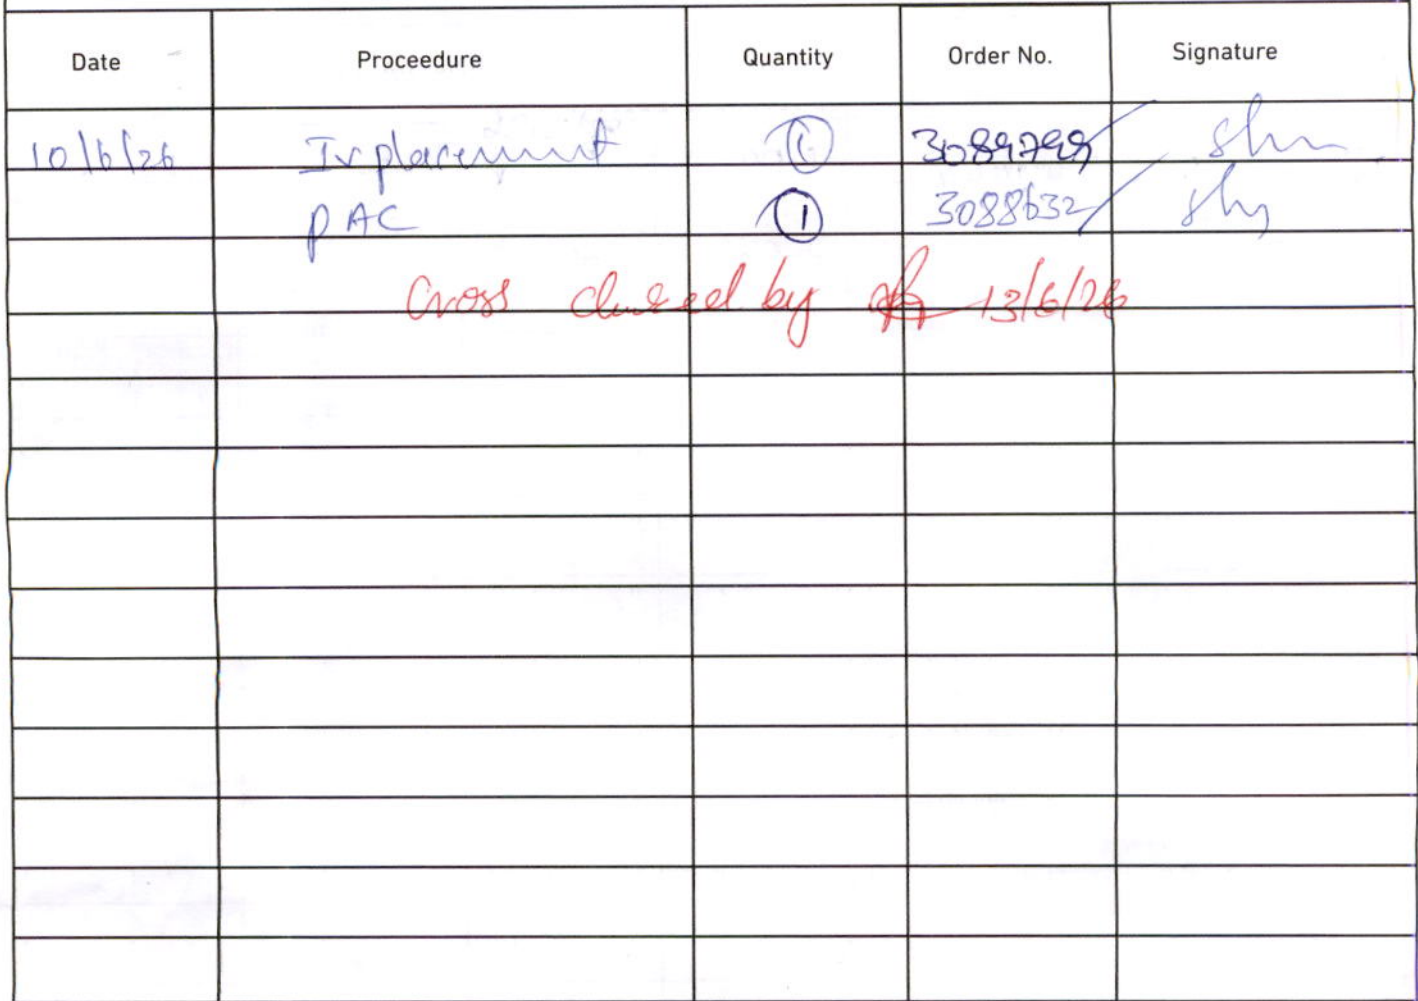 Date Proceedure Quantity Order No. Signature
10/6/26 Iv placement 1
PAC 1 3088632
Cross checked by 13/6/26